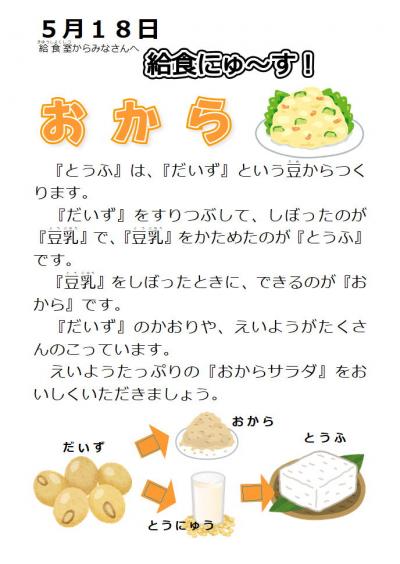 5月18日
給食室からみなさんへ
給食にゅ〜す！
おから
『とうふ』は、『だいず』という豆からつく
ります。
『だいず』をすりつぶして、しぼったのが
『豆乳』で、『豆乳』をかためたのが『とうふ』
です。
『豆乳』をしぼったときに、できるのが『お
から』です。
『だいず』のかおりや、えいようがたくさ
んのこっています。
えいようたっぷりの『おからサラダ』をお
いしくいただきましょう。
おから
だいず
とうふ
とうにゅう